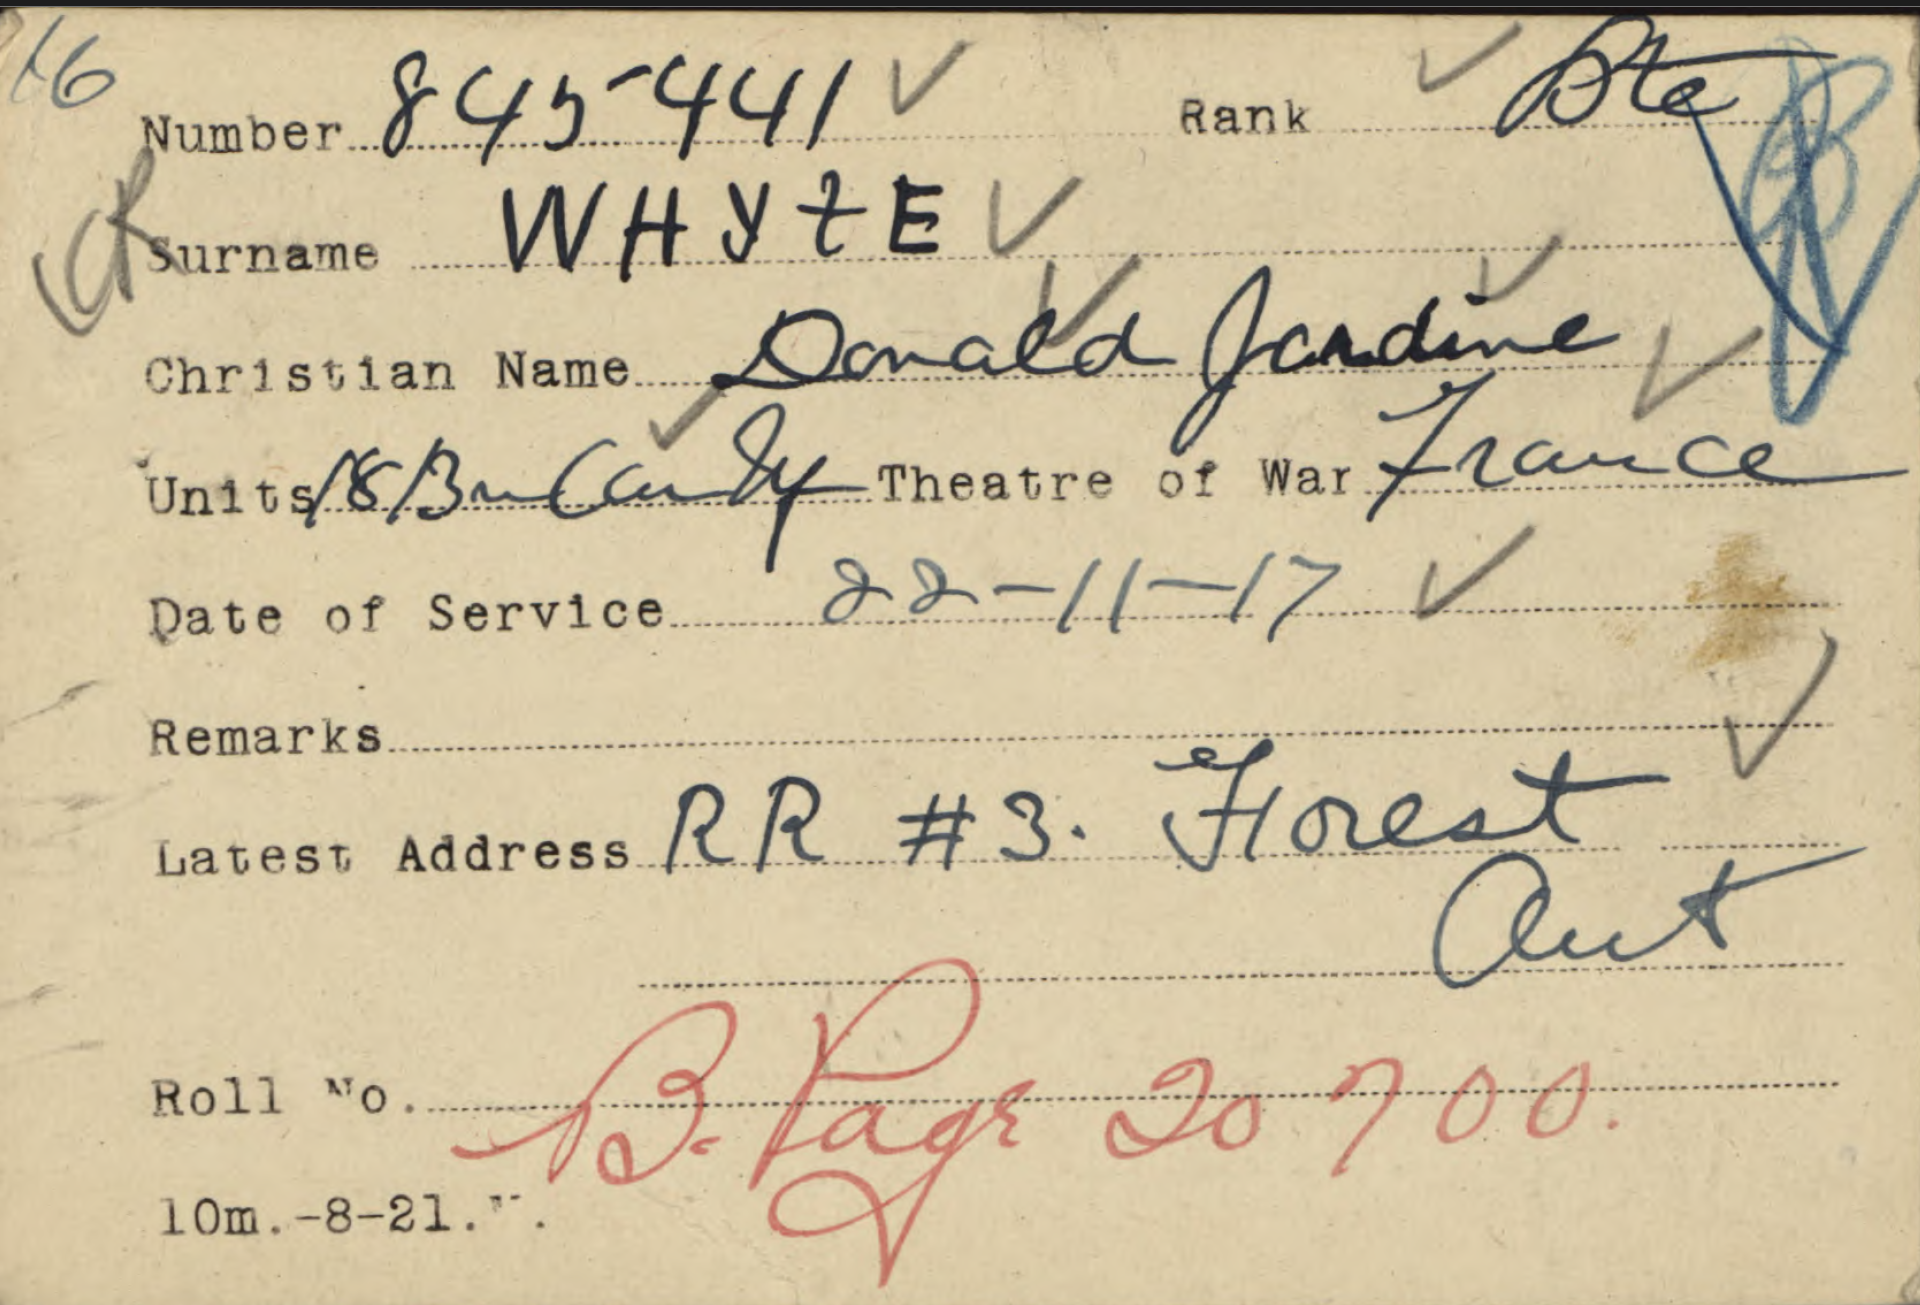 16
Number 845441 Rank Pte
Surname WHYTE
CR
Christian Name Donald Jardine
Units 18 Bn Can Inf Theatre of War France
Date of Service 22-11-17
Remarks
Latest Address RR #3. Forest
Ont
Roll No. B. Page 20700.
10m.-8-21.